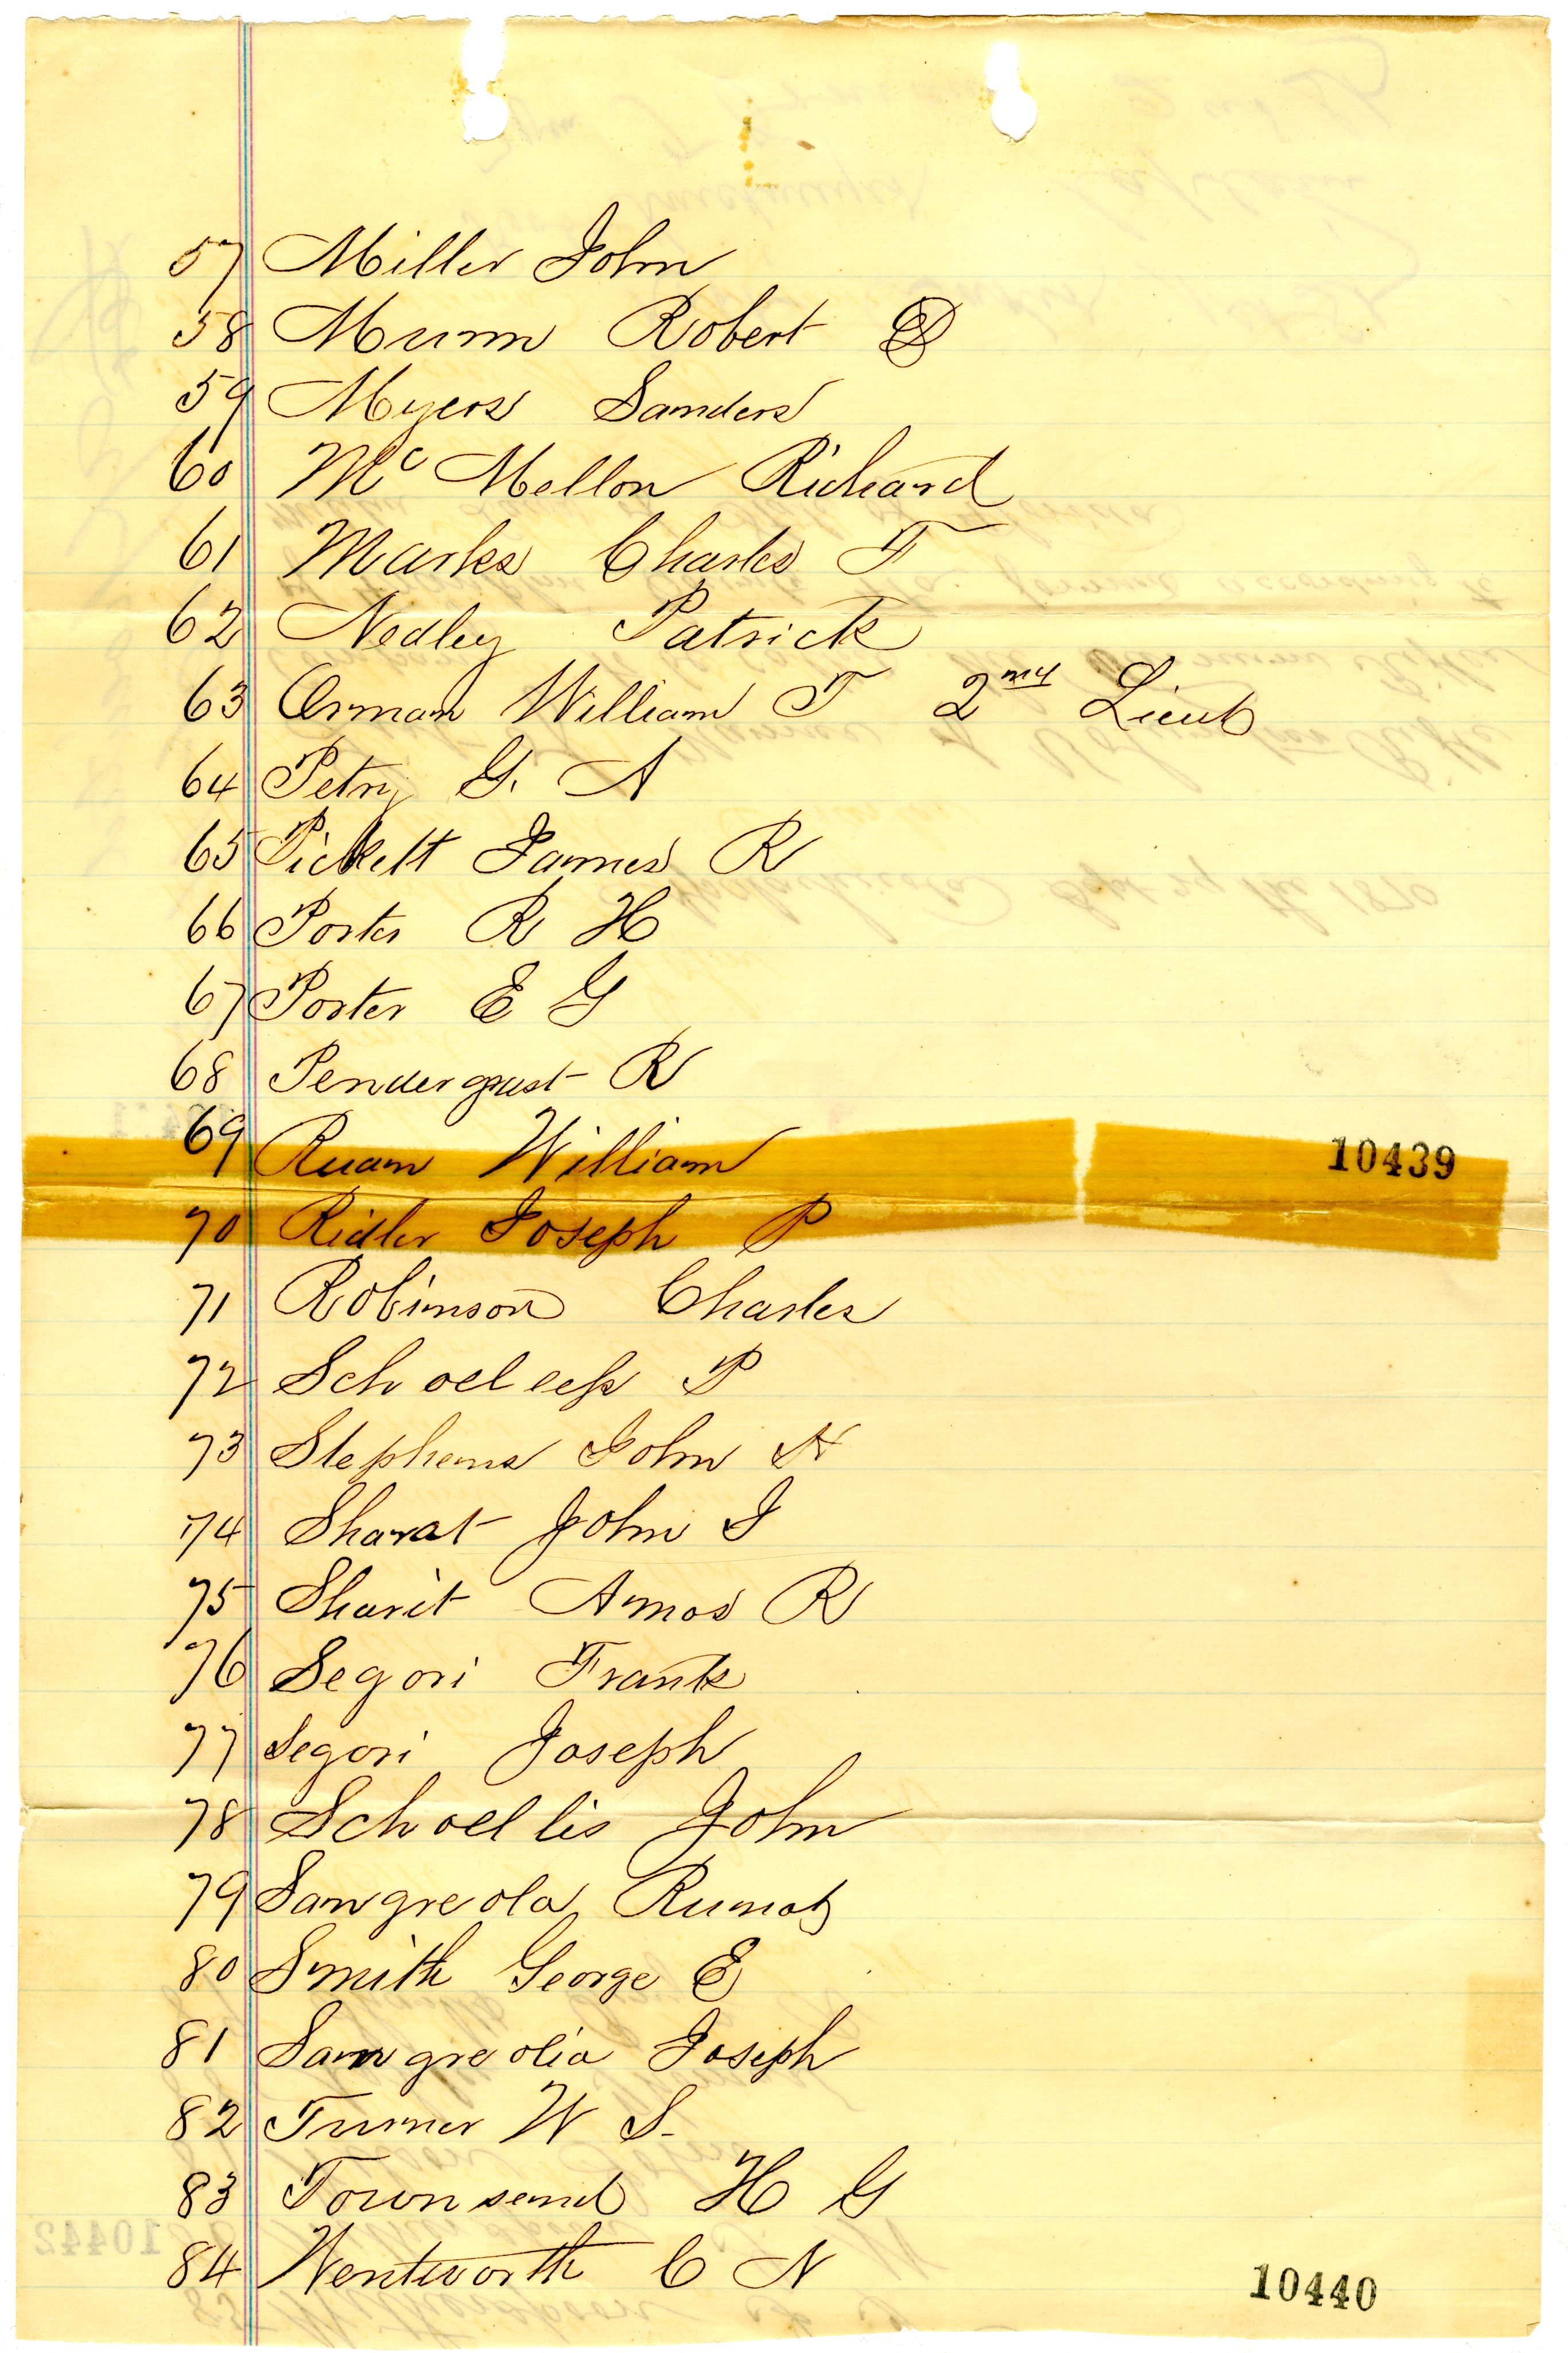 57 Miller John
58 Munn Robert D
59 Myers Sanders
60 Mc Mellon Richard
61 Marks Charles T
62 Nedley Patrick
63 Orman William T 2nd Lieut
64 Petry G. A
65 Pickett James R
66 Porter R H
67 Porter E G
68 Pendergrast R
69 Ruan William
10439
70 Ridler Joseph P
71 Robinson Charles
72 Schoelless P
73 Stephens John H
74 Sharat John J
75 Sharit Amos R
76 Segori Frank
77 Segori Joseph
78 Schoellis John
79 Sangreola
80 Smith George E
81 Sangreolia Joseph
82 Turner W S
83 Townsend H G
84 Wentworth C N
10440